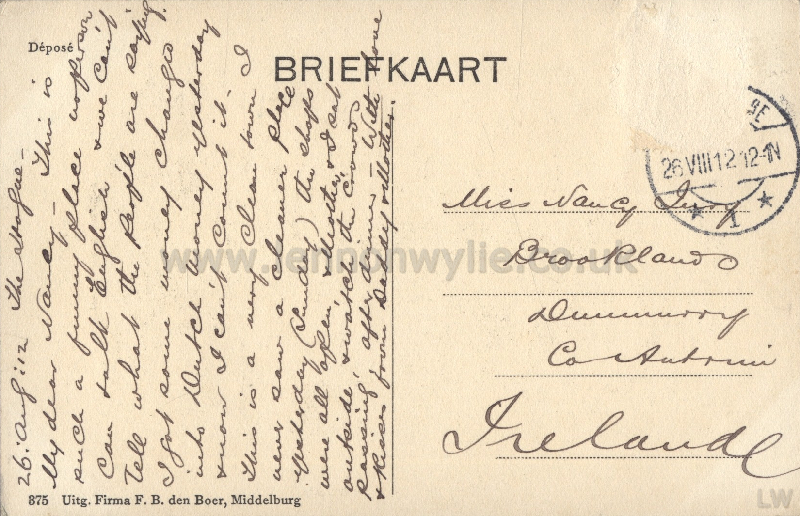 Déposé
BRIEFKAART
26. Aug: 12 The Hague -
My dear Nancy - This is
such a funny place no person
can talk English & we can't
Tell what the People are saying.
I got some money changed
into Dutch money yesterday
& now I can't count it -
This is a very clean town I
never saw a cleaner place
yesterday (Sunday) the shops
were all open, & Mother & I sat
outside & watch the crowd
passing, afty times - With love
& kisses from Daddy & Mother.
26 VIII 12 12-1N
1
Miss Nancy
Brooklands
Dunmurry
Co Antrim
Ireland
875 Uitg. Firma F. B. den Boer, Middelburg
www.lennonwylie.co.uk
LW